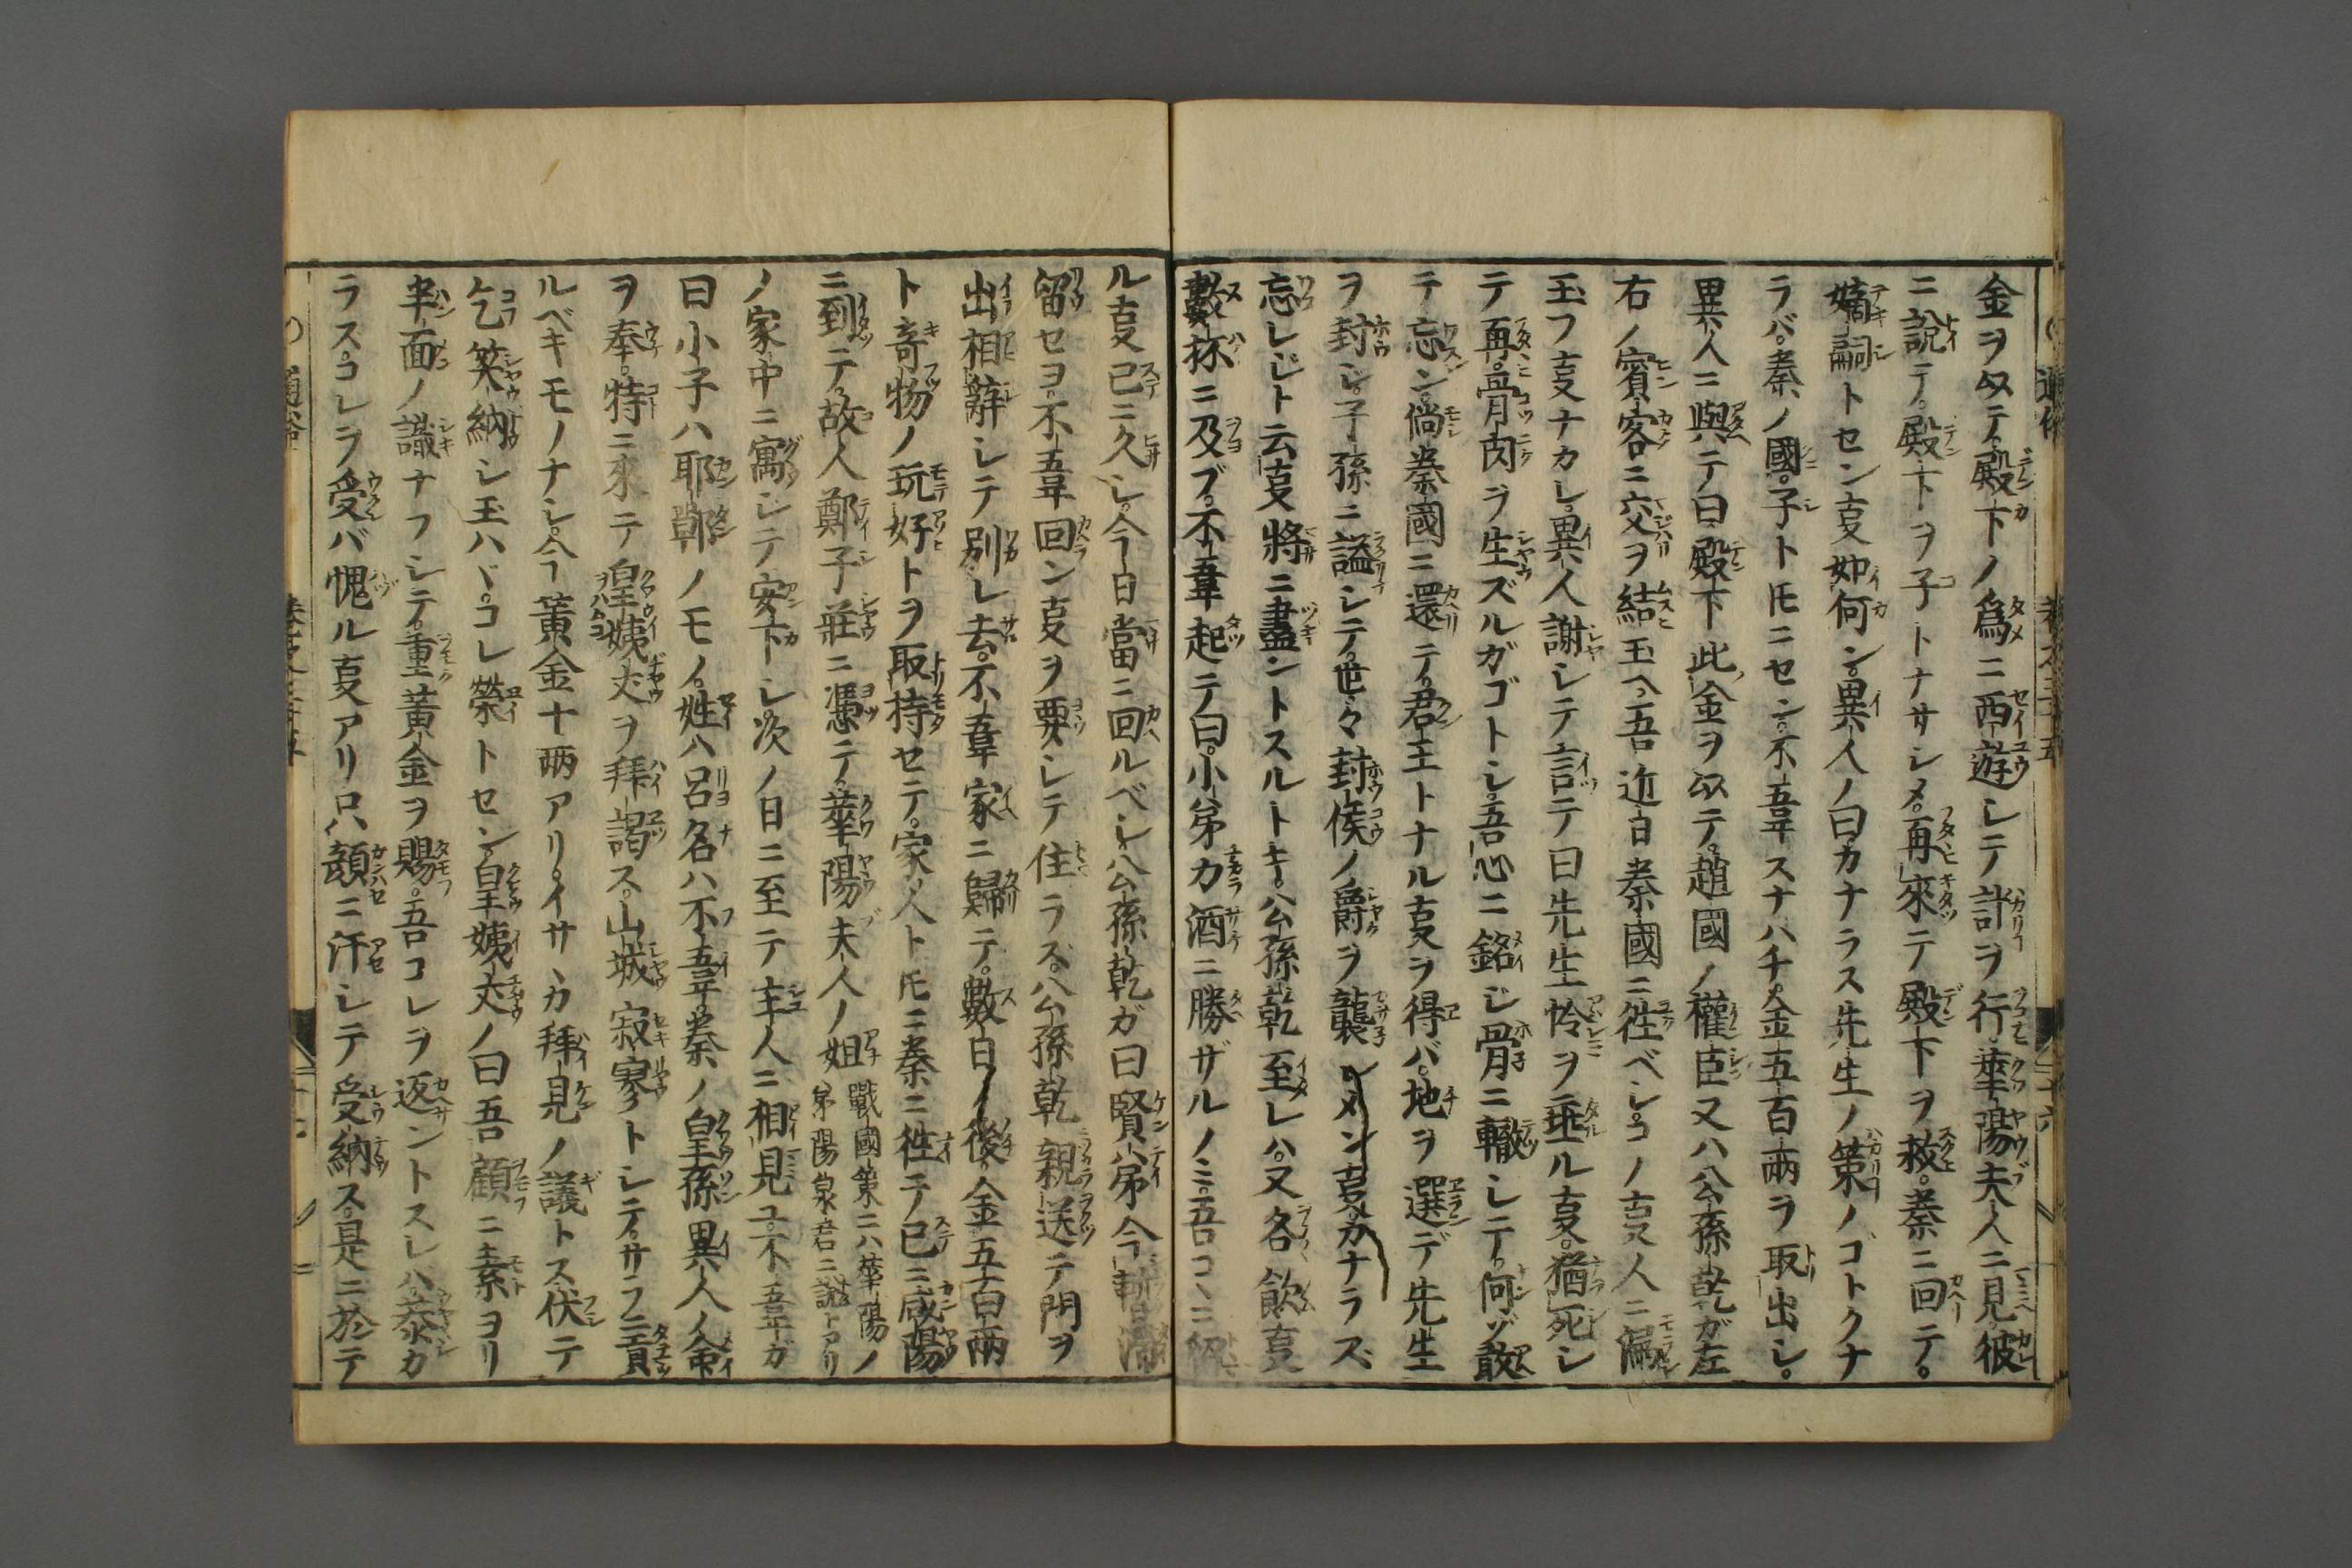 金ヲ以テ殿下ノ爲ニ西遊シテ計ヲ行華陽夫人ニ見彼
ニ說テ殿下ヲ子トナサシメ。再來テ殿下ヲ救。秦ニ回テ。
嫡嗣トセン㕝如何ン。異人ノ曰カナラス先生ノ策ノゴトクナ
ラバ。秦ノ國。子ト𪜈ニセン。不韋スナハチ金五百兩ヲ取出シ。
異人ニ與テ曰殿下此金ヲ以テ。趙國ノ權臣又ハ公孫乾ガ左
右ノ賓客ニ交ヲ結玉ヘ。吾近日秦國ニ徃ベシ。コノ㕝人ニ漏シ
玉フ㕝ナカレ。異人謝シテ言テ曰先生怜ヲ垂ル㕝。猶死シ
テ再。骨肉ヲ生ズルガゴトシ。吾心ニ銘ジ骨ニ轍シテ。何ゾ敢
テ忘ン。倘秦國ニ還テ。君王トナル㕝ヲ得バ。地ヲ選デ先生
ヲ封シ。子孫ニ謚シテ。世々封侯ノ爵ヲ襲シメン㕝カナラズ
忘レジト云㕝將ニ盡ントスルトキ。公孫乾至レハ。又各飮㕝
數杯ニ及ブ。不韋起テ曰。小弟カ酒ニ勝ザルノミ。吾コヽニ
ル㕝已ニ久シ。今日當ニ回ルベシ公孫乾ガ曰賢弟今暫滯
留セヨ。不韋回ン㕝ヲ要シテ住ラズ。公孫乾親送テ門ヲ
出相辭シテ別レ去。不韋家ニ歸テ。數日ノ後。金五百兩
ト奇物ノ玩好トヲ取持セテ。家人ト𪜈ニ秦ニ徃テ已ニ咸陽
ニ到テ。故人鄭子莊ニ憑テ。華陽夫人ノ姐戰國策ニハ華陽ノ弟陽泉君ニ說トアリ
ノ家中ニ寓シテ安下シ。次ノ日ニ至テ主人ニ相見ユ。不韋ガ
曰小子ハ耶鄲ノモノ。姓ハ呂名ハ不韋秦ノ皇孫異人ノ命
ヲ奉。特ニ來テノ皇姨丈ヲ拜謁ス。山城寂寥トシテ。サラニ貢
ルベキモノナシ。今黃金十兩アリ。イサヽカ拜見ノ議トス伏テ
乞笑納シ玉ハヾ。コレ榮トセン皇姨丈ノ曰吾顧ニ素ヨリ
半面ノ識ナフシテ。重黃金ヲ賜。吾コレヲ返ントスレハ。恭カ
ラス。コレヲ受バ愧ル㕝アリ只顔ニ汗シテ受納ス。是ニ於テ